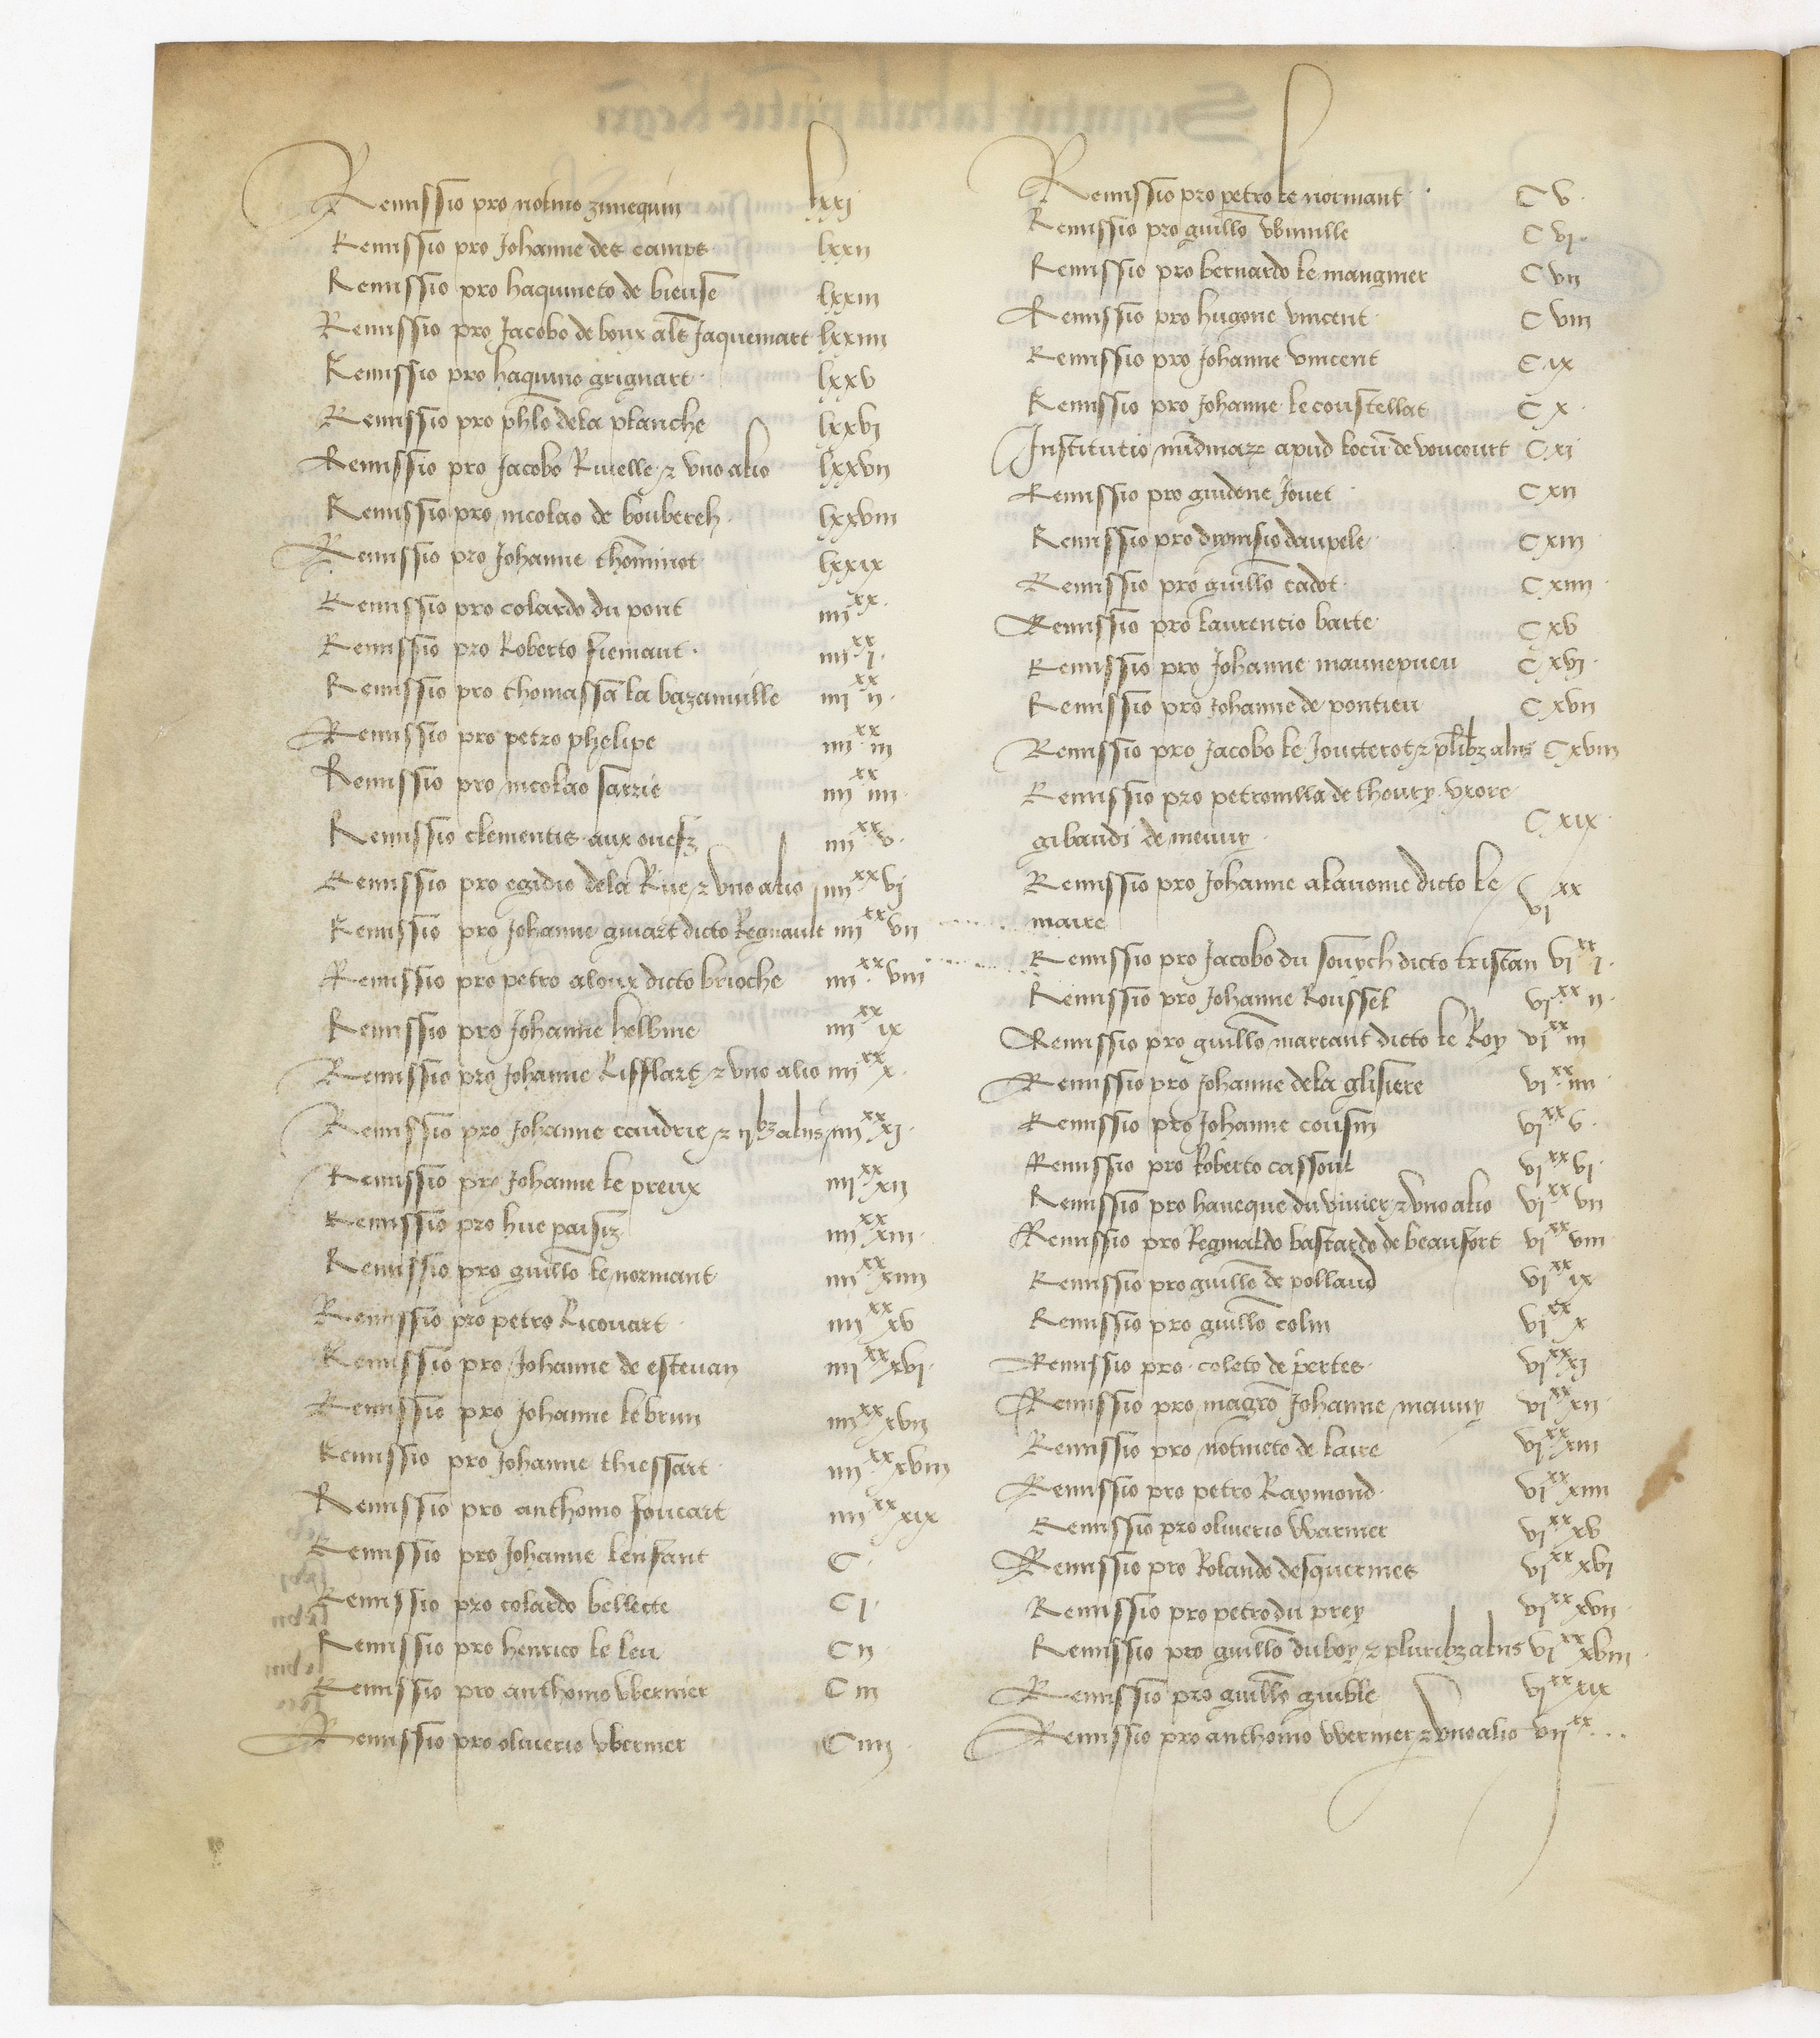 Remissio pro notino zimequin lxxj
Remissio pro Johanne des camps lxxij
Remissio pro haquineto de bieuse lxxiij
Remissio pro Jacobo de boux als Jaquemart lxxiiij
Remissio pro haquino grignart lxxv
Remissio pro phlo dela planche lxxvj
Remissio pro Jacobo Ruelle et vno alio lxxvij
Remissio pro nicolao de boubereh lxxviij
Remissio pro Johanne thominot lxxix
Remissio pro colardo du pont iiijxx
Remissio pro Roberto fiemant iiijxx j
Remissio pro thomassa la bazanville iiijxx ij
Remissio pro petro phelipe iiijxx iij
Remissio pro nicolao sarrie iiijxx iiij
Remissio clementis aux ouefz iiijxx v
Remissio pro egidio dela Rue et vno alio iiijxx vj
Remissio pro Johanne guiart dicto Regnault iiijxx vij
Remissio pro petro aloux dicto brioche iiijxx viij
Remissio pro Johanne hellime iiijxx ix
Remissio pro Johanne Rifflart et vno alio iiijxx x
Remissio pro Johanne caudrie et ijbz aliis iiijxx xj
Remissio pro Johanne le preux iiijxx xij
Remissio pro hue paisiz iiijxx xiij
Remissio pro guillo le normant iiijxx xiiij
Remissio pro petro Ricouart iiijxx xv
Remissio pro Johanne de esteuan iiijxx xvj
Remissio pro Johanne lebrun iiijxx xvij
Remissio pro Johanne thiessart iiijxx xviij
Remissio pro anthonio foucart iiijxx xix
Remissio pro Johanne lenfant C
Remissio pro colardo bellecte C j
Remissio pro henrico le leu C ij
Remissio pro anthonio vvernier C iij
Remissio pro oliuerio vvernier C iiij
Remissio pro petro le normant C v
Remissio pro guillo vvinille C vj
Remissio pro bernardo le mangnier C vij
Remissio pro hugone vincent C viij
Remissio pro Johanne vincent C ix
Remissio pro Johanne le coustellat C x
Institutio nundinarz apud locu de voucourt C xj
Remissio pro guidone Jouet C xij
Remissio pro dionisio daupele C xiij
Remissio pro guillo cadot C xiiij
Remissio pro laurencio barte C xv
Remissio pro Johanne maunepueu C xvj
Remissio pro Johanne de pontieu C xvij
Remissio pro Jacobo le Joucterot et plibz aliis C xviij
Remissio pro petronilla de thoury vxore
gibaudi de meuuy C xix
Remissio pro Johanne alauoine dicto le
maire vjxx
Remissio pro Jacobo du souych dicto tristan vjxx j
Remissio pro Johanne Roussel vjxx ij
Remissio pro guillo marcant dicto le Roy vjxx iij
Remissio pro Johanne dela glisiere vjxx iiij
Remissio pro Johanne cousin vjxx v
Remissio pro Roberto cassoul vjxx vj
Remissio pro haneque du viuier et vno alio vjxx vij
Remissio pro Reginaldo bastardo de beaufort vjxx viij
Remissio pro guillo de pollaud vjxx ix
Remissio pro guillo colin vjxx x
Remissio pro coleto de pertes vjxx xj
Remissio pro magro Johanne mauny vjxx xij
Remissio pro notineto de laire vjxx xiij
Remissio pro petro Raymond vjxx xiiij
Remissio pro oliuerio vvarnier vjxx xv
Remissio pro Rolando desquermes vjxx xvj
Remissio pro petro du prey vjxx xvij
Remissio pro guillo duboy et pluribz aliis vjxx xviij
Remissio pro guillo guible vjxx xix
Remissio pro anthonio vvernier et vno alio vijxx